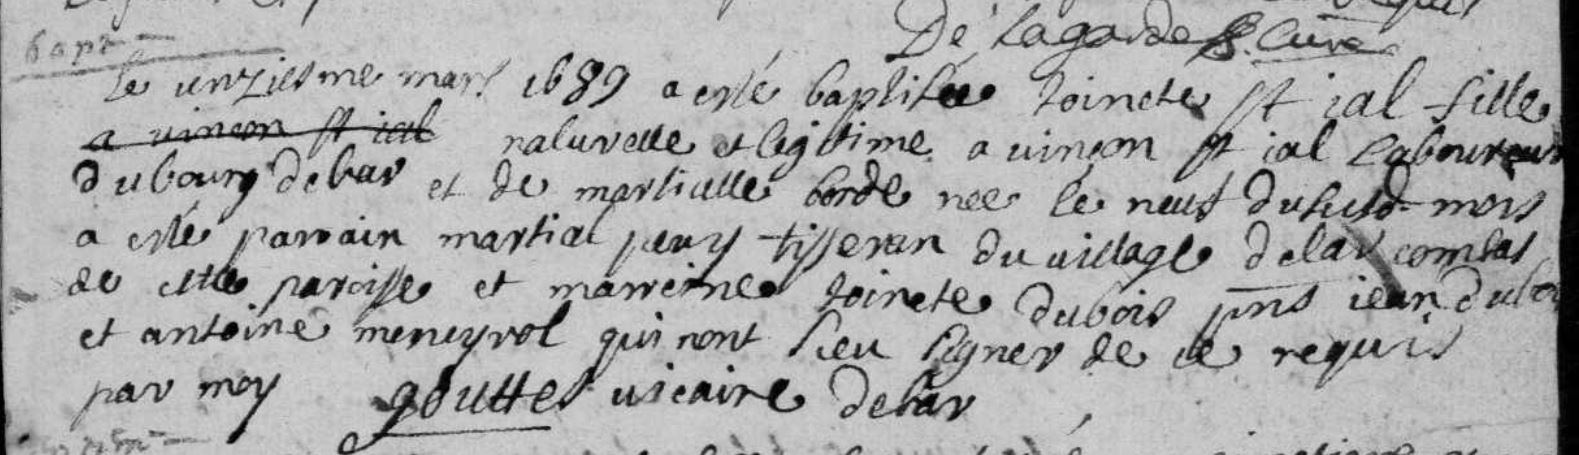 De Lagarde p. Curé
bapt
Le unziesme mars 1689 a esté baptisée toinete st ial fille
a vincon st ial naturelle et legitime a vincon st ial Laboureur
du bourg debar et de martialle borde nee le neuf dususd. mois
a esté parrain martial peuy tisseran du village delas combas
de cette paroisse et marreine toinete dubois pns iean dubois
et antoine meneyrol qui nont sceu signer de ce requis
par moy gouttes vicaire debar